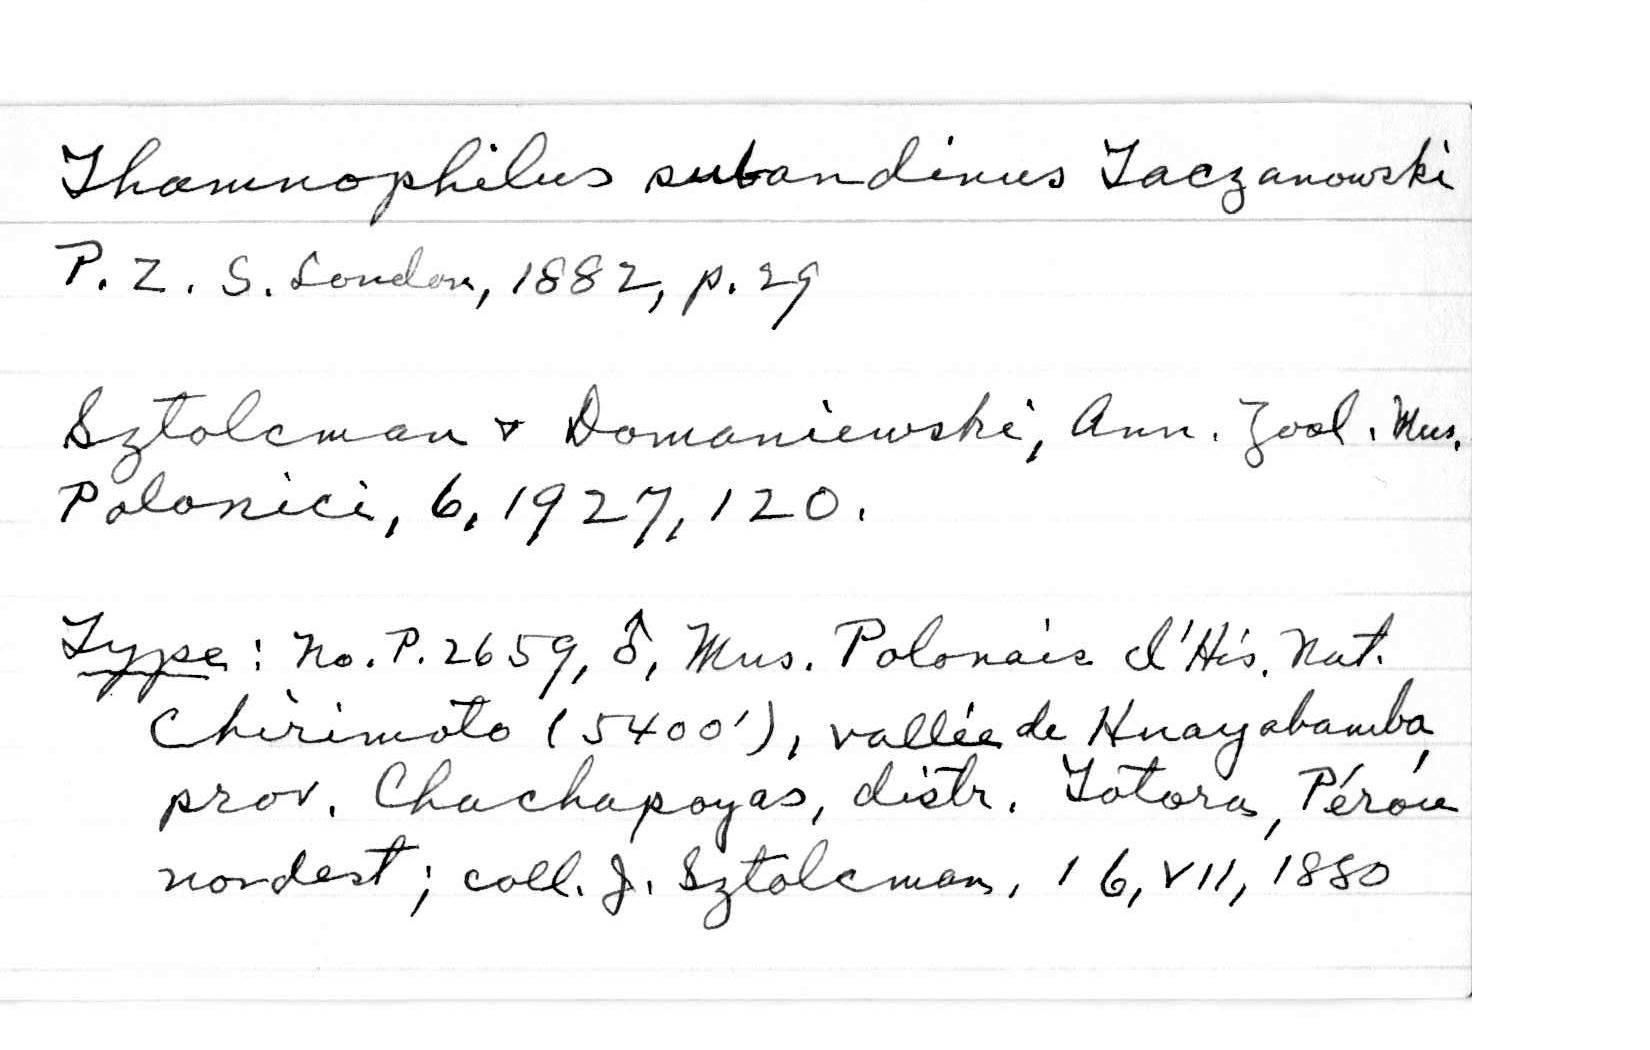 Thamnophilus subandinus Taczanowski
P. Z. S. London, 1882, p. 29
Sztolcman & Domaniewski, Ann. Zool. Mus.
Polonici, 6, 1927, 120.
Type: No. P. 2659, ♂, Mus. Polonais d'His. Nat.
Chirimoto (5400'), vallée de Huayabamba,
prov. Chachapoyas, distr. Totora, Pérou
nordest; coll. J. Sztolcman, 16, VII, 1880